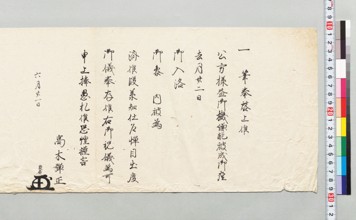 一筆奉啓上候
公方様益御機嫌能被成御座
去月廿二日
御入洛
御参内被為
済候段承知仕恐悦目出度
御儀奉存候右御祝儀為可
申上捧愚札候恐惶謹言
六月廿一日
高木弾正